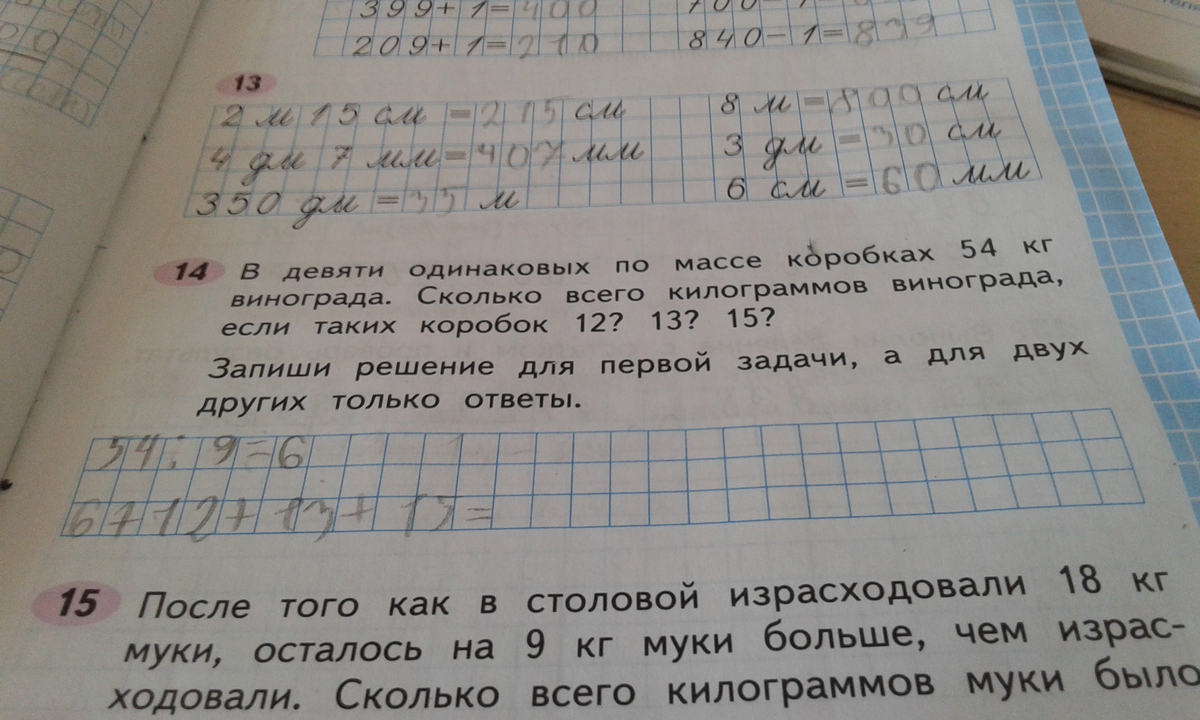 399+1=400
209+1=210
840-1=839
13
2 м 15 см =215 см
8 м =800 см
4 дм 7 мм=407 мм
3 дм =30 см
350 дм =35 м
6 см =60 мм
14 В девяти одинаковых по массе коробках 54 кг
винограда. Сколько всего килограммов винограда,
если таких коробок 12? 13? 15?
Запиши решение для первой задачи, а для двух
других только ответы.
54:9=6
6+12+13+15=
15 После того как в столовой израсходовали 18 кг
муки, осталось на 9 кг муки больше, чем израс-
ходовали. Сколько всего килограммов муки было